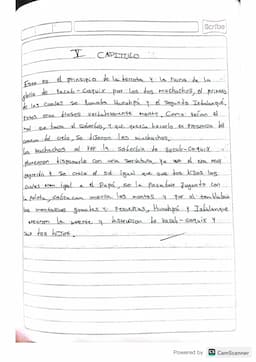 Scribe
V CAPITULO
Este es el principio de la derrota y la ruina de la
gloria de Vucub-Caquix por los dos muchachos, el primero
de los cuales se llamaba Hunahpú y el segundo Ixbalanqué,
Estos eran dioses verdaderamente. Como veían el
mal se hacia el soberbio, y que quería hacerlo en presencia del
corazon del cielo, se dijeron los muchachos.
los muchachos al ver la soberbia de Vucub-Caquix
una ya que el era muy
y se creia el sol igual que sus dos hijos los
cuales eran igual a el Papá, se la pasaban jugando con
la pelota, los montes y por el temblaban
las montañas grandes y pequeñas, Hunahpú y Ixbalanque
la muerte y destruccion de Vucub-caquix y
sus dos hijos.
Powered by CS CamScanner